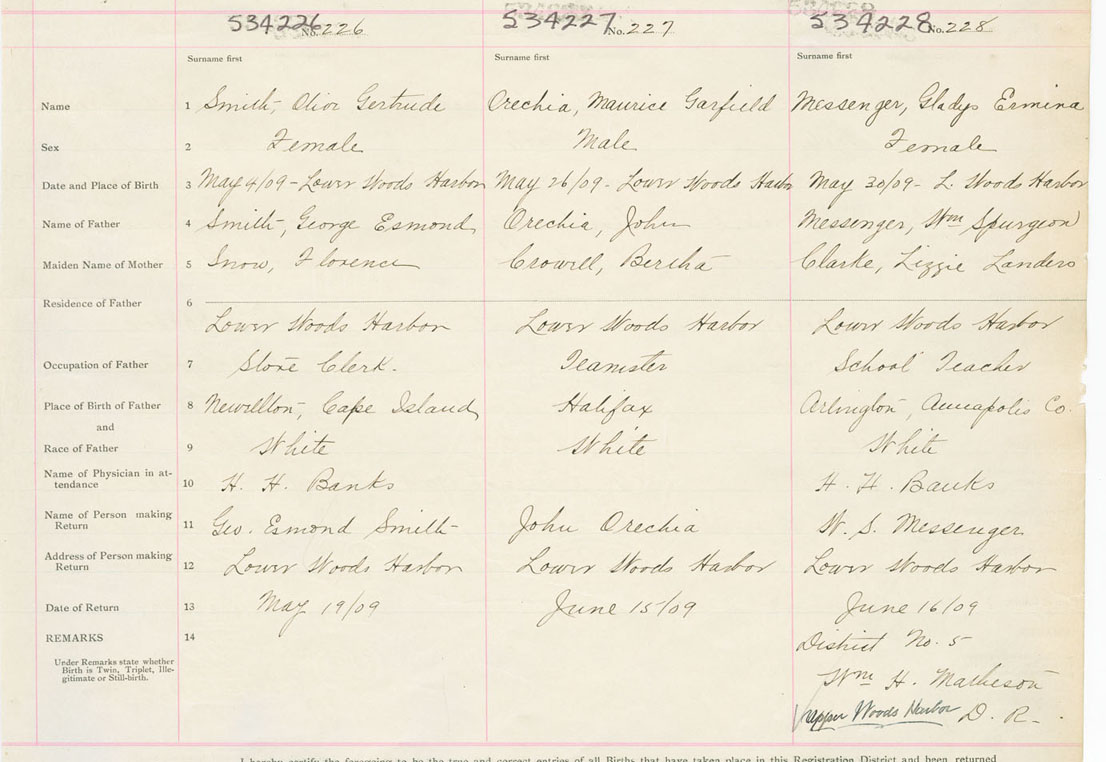 534226 No. 226 534227 No. 227 534228 No. 228
Surname first Surname first Surname first
Name 1 Smith, Olive Gertrude Orechia, Maurice Garfield Messenger, Gladys Ermina
Sex 2 Female Male Female
Date and Place of Birth 3 May 4/09 - Lower Woods Harbor May 26/09 - Lower Woods Harbor May 30/09 - L. Woods Harbor
Name of Father 4 Smith, George Esmond Orechia, John Messenger, Wm Spurgeon
Maiden Name of Mother 5 Snow, Florence Crowell, Bertha Clarke, Lizzie Landers
Residence of Father 6
Lower Woods Harbor Lower Woods Harbor Lower Woods Harbor
Occupation of Father 7 Store Clerk. Teamster School Teacher
Place of Birth of Father 8 Newellton, Cape Island Halifax Arlington, Annapolis Co.
and
Race of Father 9 White White White
Name of Physician in at-
tendance 10 H. H. Banks H. H. Banks
Name of Person making
Return 11 Geo. Esmond Smith John Orechia W. S. Messenger
Address of Person making
Return 12 Lower Woods Harbor Lower Woods Harbor Lower Woods Harbor
Date of Return 13 May 19/09 June 15/09 June 16/09
REMARKS 14 District No. 5
Under Remarks state whether
Birth is Twin, Triplet, Ille-
gitimate or Still-birth.
Wm H. Matheson
Upper Woods Harbor D. R.
I hereby certify the foregoing to be the true and correct entries of all Births that have taken place in this Registration District and been returned